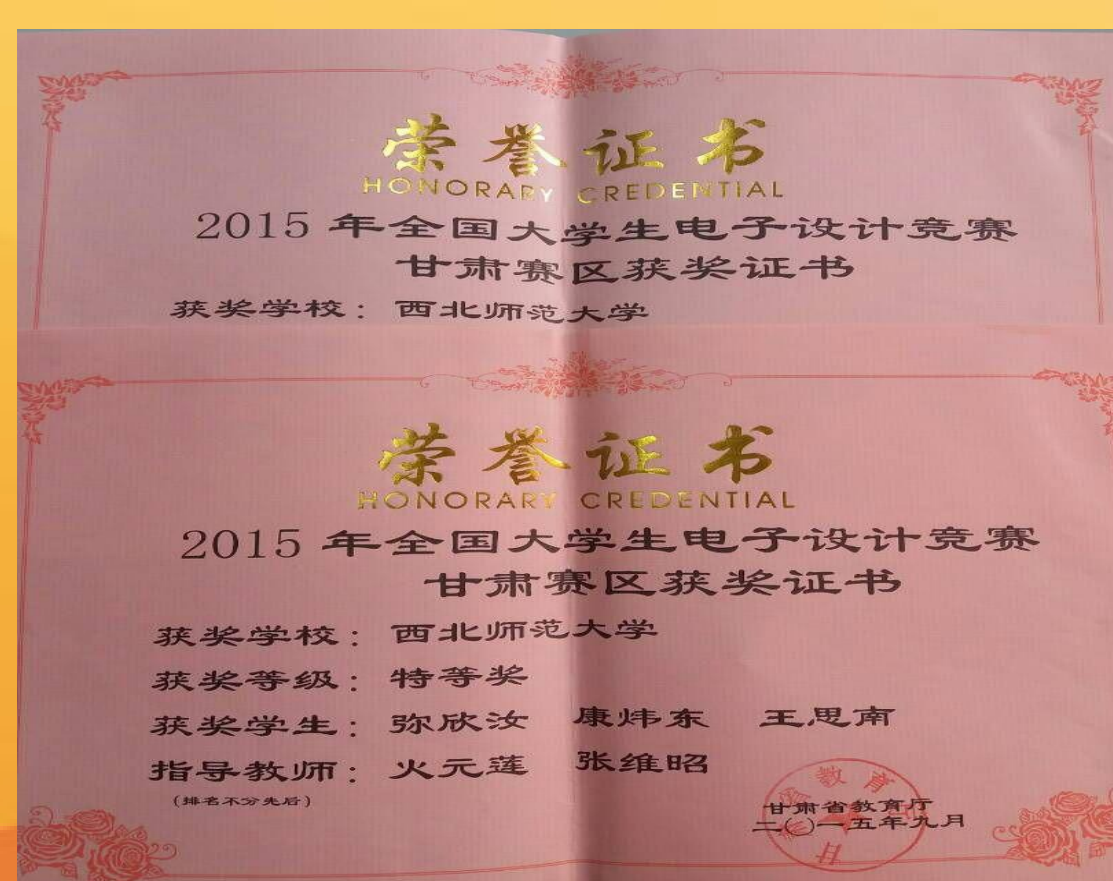 荣誉证书
HONORARY CREDENTIAL
2015 年全国大学生电子设计竞赛
甘肃赛区获奖证书
获奖学校：西北师范大学
荣誉证书
HONORARY CREDENTIAL
2015 年全国大学生电子设计竞赛
甘肃赛区获奖证书
获奖学校：西北师范大学
获奖等级：特等奖
获奖学生：弥欣汝 康炜东 王思南
指导教师：火元莲 张维昭
(排名不分先后)
甘肃省教育厅
二〇一五年九月